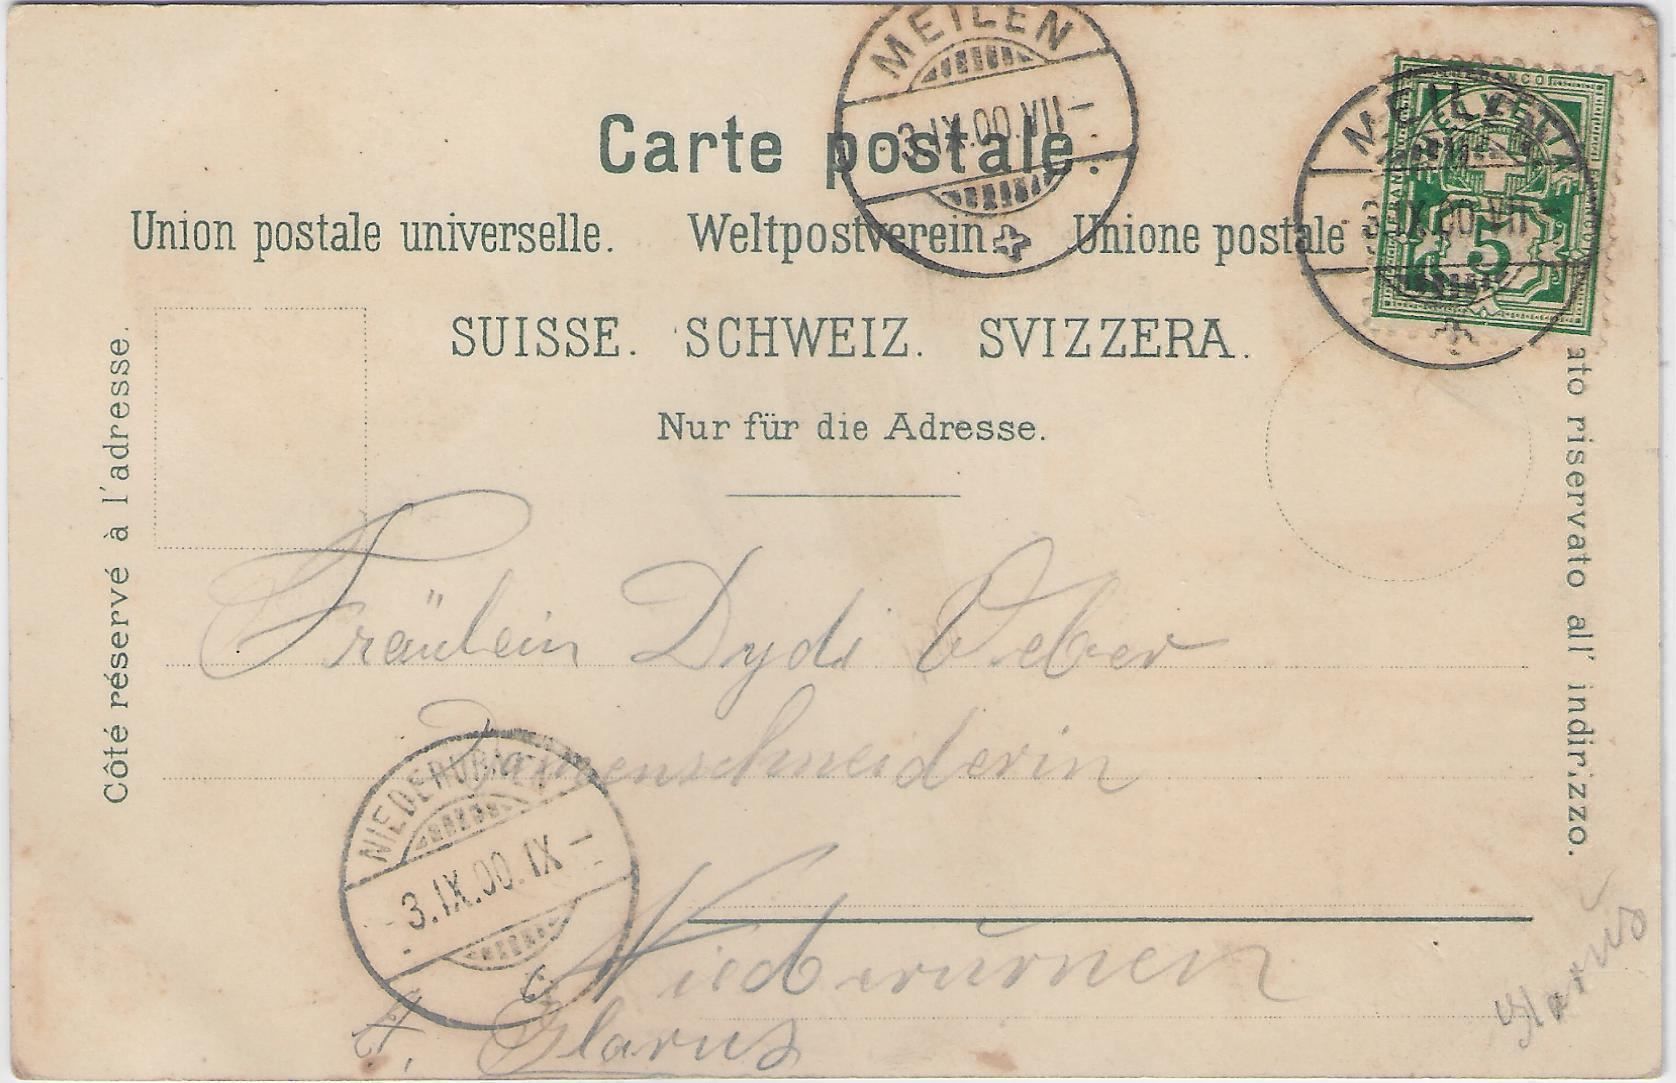 MEILEN
3.IX.00.VII-
Carte postale.
FRANCO
MEILEN
-3.IX.00.VII-
5
Union postale universelle. Weltpostverein. Unione postale
SUISSE. SCHWEIZ. SVIZZERA.
Nur für die Adresse.
Côté réservé à l'adresse.
ato riservato all' indirizzo.
Fräulein Dydi Weber
Damenschneiderin
NIEDERURNEN
-3.IX.00.IX-
Niederurnen
Kt. Glarus
Glarus